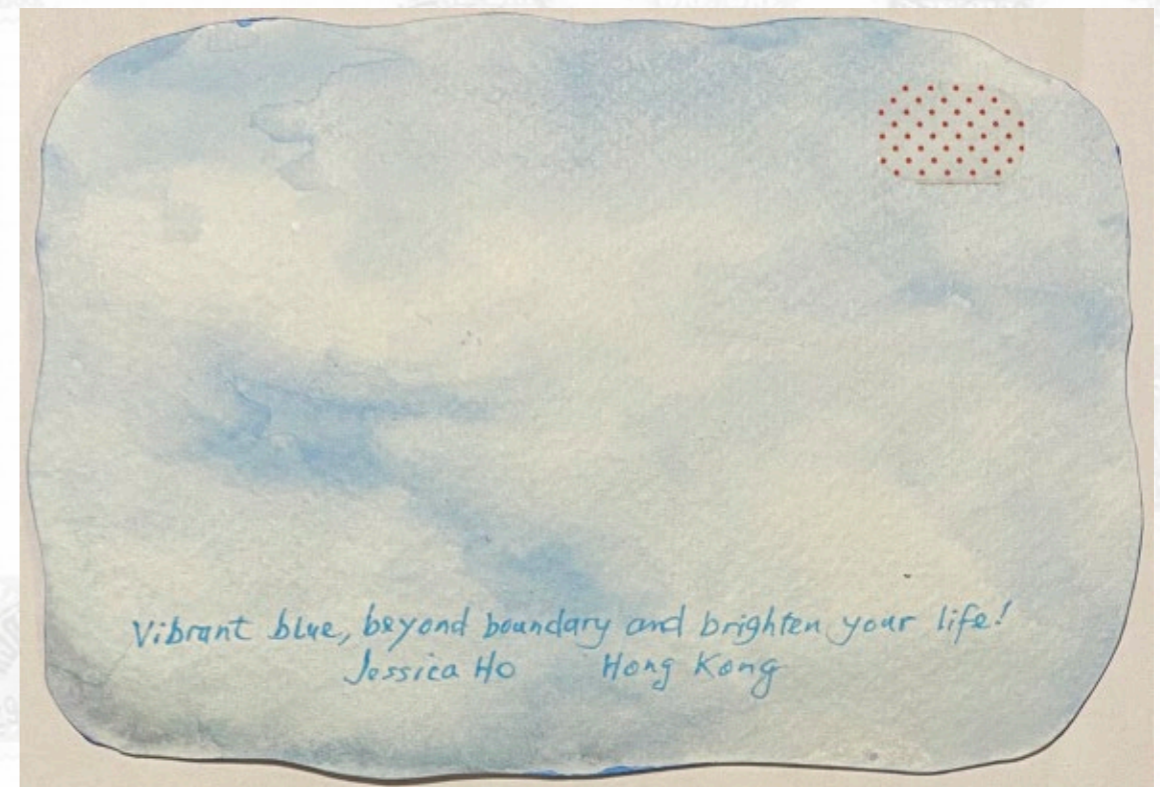 Vibrant blue, beyond boundary and brighten your life!
Jessica Ho Hong Kong